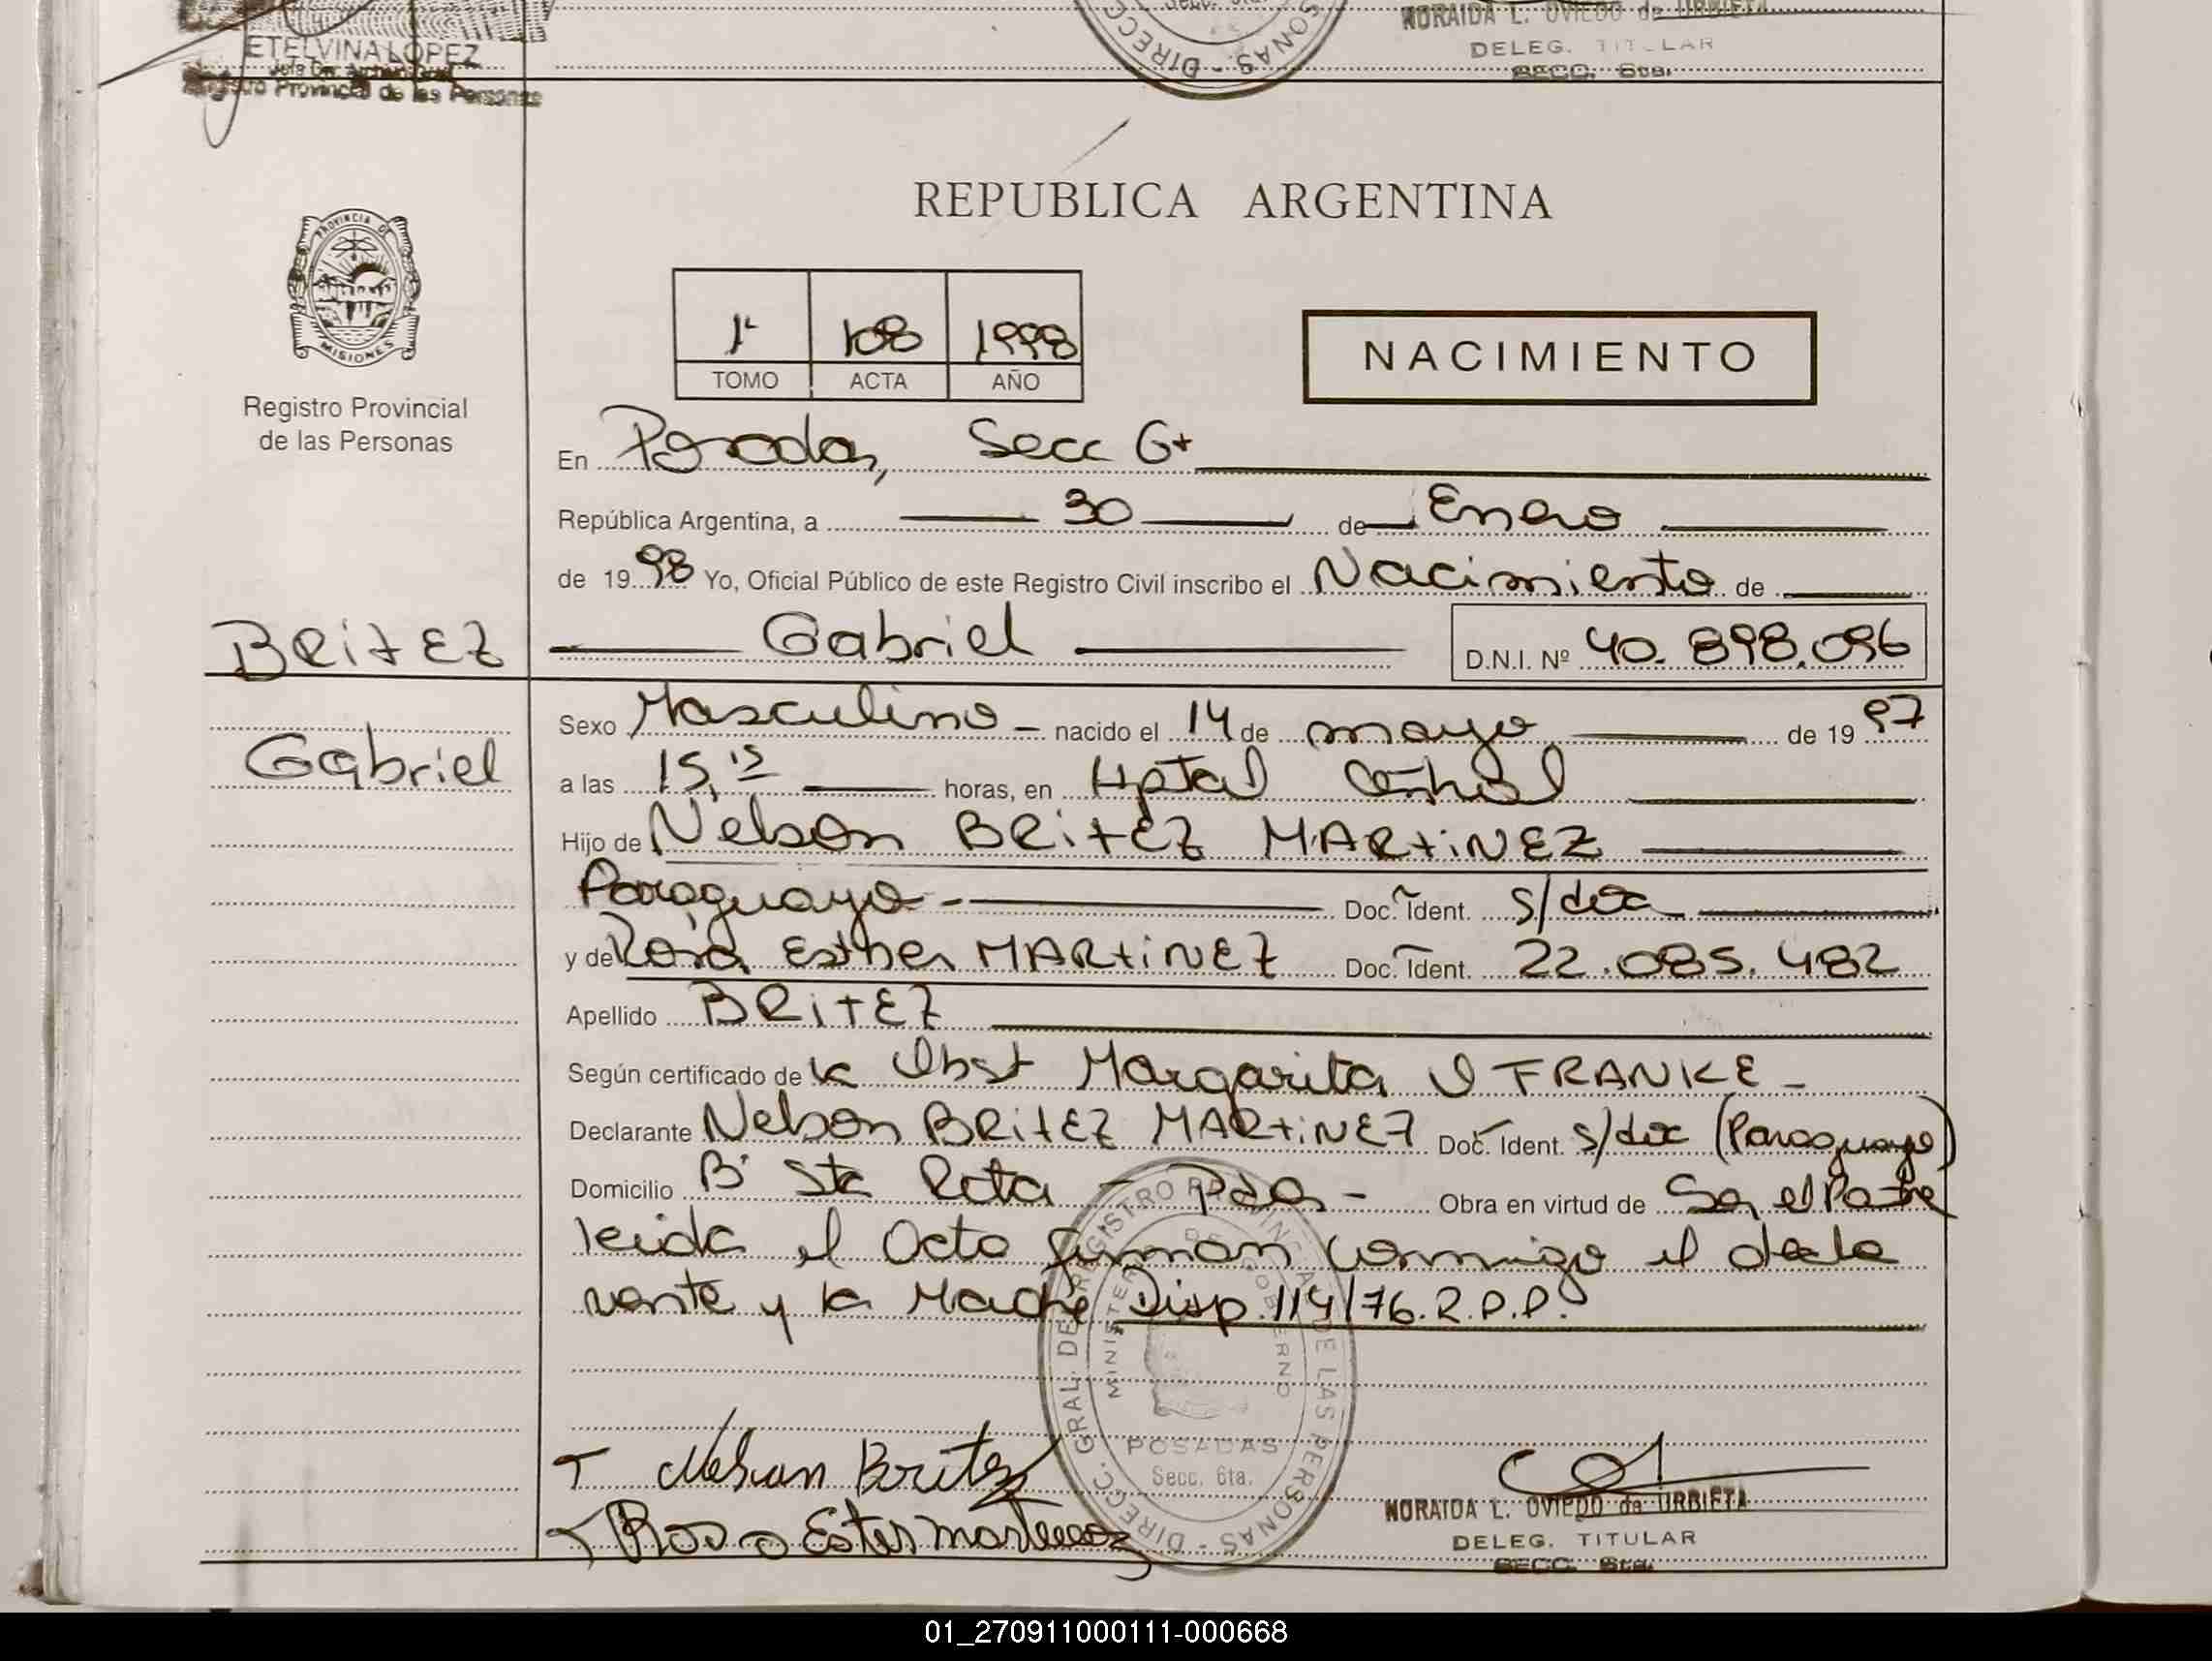 NORAIDA L. OVIEDO de URBIETA
ETELVINA LOPEZ
DELEG. TITULAR
SECC. 6ta.
Registro Provincial de las Personas
REPUBLICA ARGENTINA
PROVINCIA DE
MISIONES
Registro Provincial
de las Personas
1º 108 1998
TOMO ACTA AÑO
NACIMIENTO
En Posadas, Secc 6ta
República Argentina, a 30 de Enero
de 1998 Yo, Oficial Público de este Registro Civil inscribo el Nacimiento de
BRitEZ
Gabriel
Gabriel D.N.I. Nº 40.898.096
Sexo Masculino - nacido el 14 de mayo de 1997
a las 15,15 horas, en Hptal Central
Hijo de Nelson BRitEZ MARtiNEZ
Paraguayo - Doc. Ident. s/doc
y de Rosa Esther MARtiNEZ Doc. Ident. 22.085.482
Apellido BRitEZ
Según certificado de la Obst Margarita O FRANKE -
Declarante Nelson BRitEZ MARtiNEZ Doc. Ident. s/doc (Paraguayo)
Domicilio Bº Sta Rita - Pdas - Obra en virtud de Ser el Padre
leida el Acta firman conmigo el decla
rante y la Madre Disp. 114/76.R.P.P.
DIRECC. GRAL. DEL REGISTRO PROVINCIAL DE LAS PERSONAS
MINISTERIO DE GOBIERNO
POSADAS
Secc. 6ta.
Nelson Britez
Rosa Ester Martinez
NORAIDA L. OVIEDO de URBIETA
DELEG. TITULAR
SECC. 6ta.
01_270911000111-000668